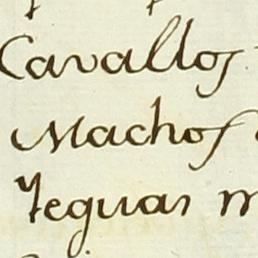 Cavallos
Machos
Yeguas